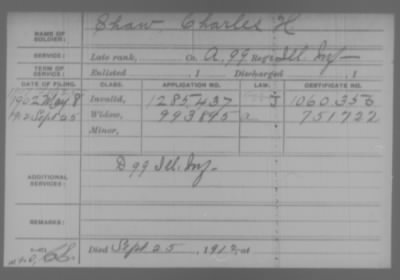 NAME OF SOLDIER: Shaw, Charles H
SERVICE: Late rank, Co. A, 99 Reg't Ill Inf
TERM OF SERVICE: Enlisted , 1 Discharged , 1
DATE OF FILING. CLASS. APPLICATION NO. LAW. CERTIFICATE NO.
1902 May 8 Invalid, 1285437 J 1060356
1912 Sept 25 Widow, 993895 a 751722
Minor,
ADDITIONAL SERVICES: D 99 Ill. Inf
REMARKS:
Died Sept 25, 1912, at